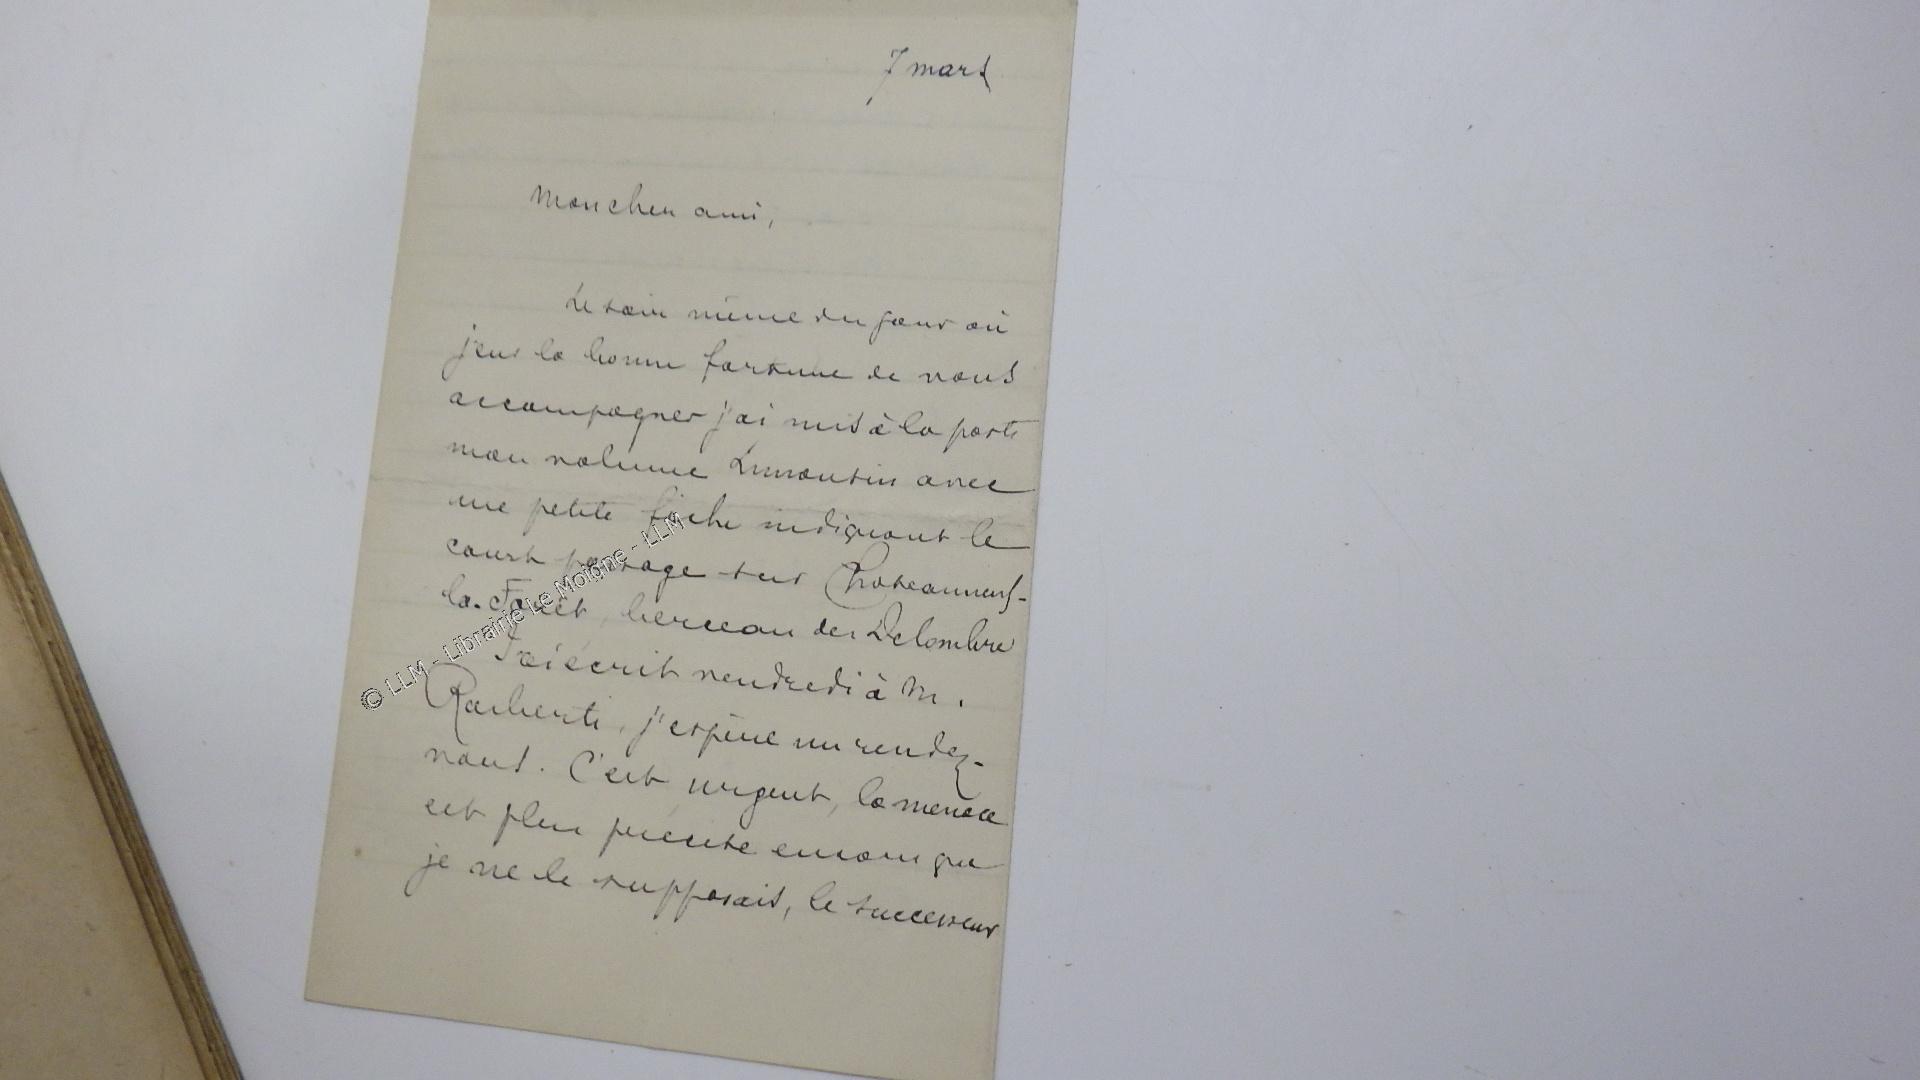 7 mars
Mon cher ami,
Le soir même du jour où
j'eus la bonne fortune de vous
accompagner j'ai mis à la poste
mon volume Limousin avec
une petite fiche indiquant le
court passage sur Chateauneuf-
la-Forêt, berceau des Delombre
J'ai écrit vendredi à M.
Raiberti, j'espère un rendez-
vous. C'est urgent, la menace
est plus précise encore que
je ne le supposais, le successeur
© LLM - Librairie Le Moigne - LLM